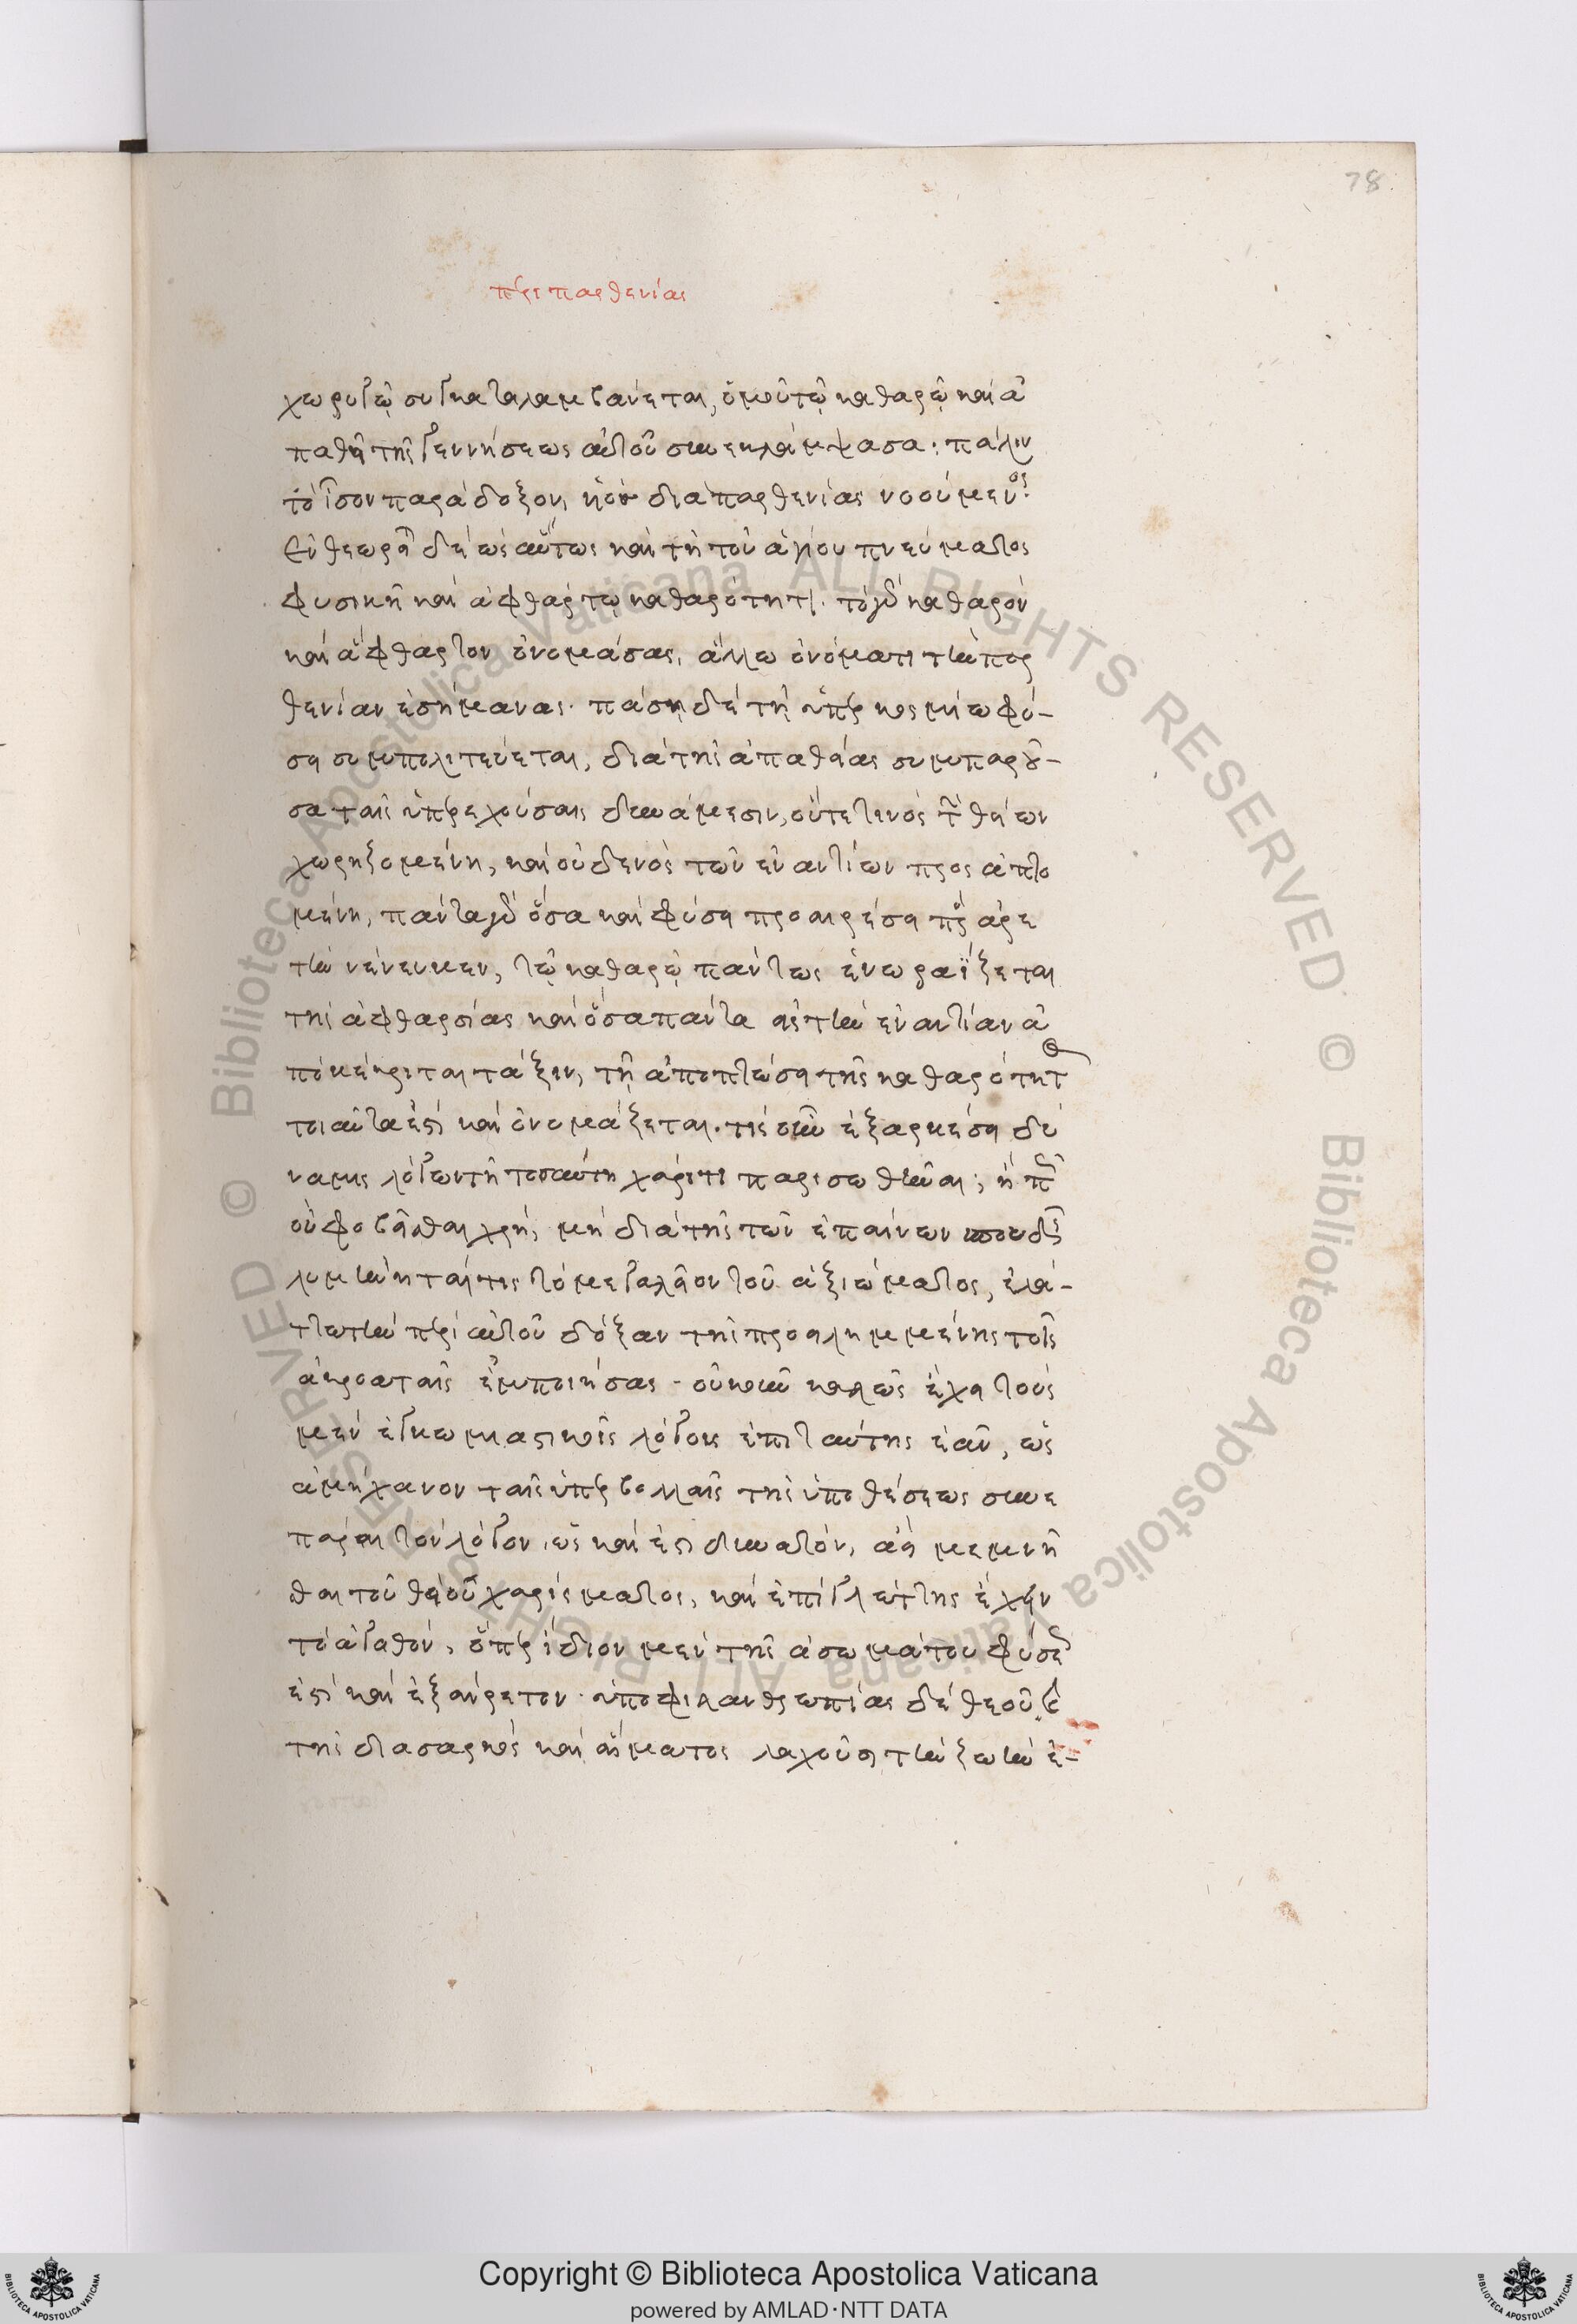 78
περι παρθενίας
χωρητῷ συγκαταλαμβάνεται, ὁμοῦ τῷ καθαρῷ καὶ ἀ
παθεῖ τῆς γεννήσεως αὐτοῦ συνεκλάμψασα· πάλιν
τὸ ἴσον παράδοξον, υἱὸς διὰ παρθενίας νοούμενος·
ἐνθεωρεῖται δὲ ὡσαύτως καὶ τῇ τοῦ ἁγίου πνεύματος
φυσικῇ καὶ ἀφθάρτῳ καθαρότητι. τὸ γὰρ καθαρὸν
καὶ ἄφθαρτον ὀνομάσας, ἄλλω ὀνόματι τὴν παρ
θενίαν ἐσήμανας. πάσῃ δὲ τῇ ὑπερκοσμίω φύ-
σει συμπολιτεύεται, διὰ τῆς ἀπαθείας συμπαροῦ-
σα ταῖς ὑπερεχούσαις δυνάμεσιν, οὔτε τινὸς τῶν θείων
χωριζομένη, καὶ οὐδενὸς τῶν ἐναντίων προσαπτο
μένη, πάντα γὰρ ὅσα καὶ φύσει προαιρέσει πρὸς ἀρε
τὴν νένευκεν, τῷ καθαρῷ πάντως ἐνωραΐζεται
τῆς ἀφθαρσίας καὶ ὅσα πάντα εἰς τὴν ἐναντίαν ἀ
ποκέκριται τάξιν, τῇ ἀποπτώσει τῆς καθαρότητος
τοιαῦτα ἐστὶ καὶ ὀνομάζεται. τίς οὖν ἐξαρκέσει δύ
ναμις λόγων τῇ τοσαύτῃ χάριτι παρισωθῆναι; ἢ πῶς
οὐ φοβεῖσθαι χρὴ, μὴ διὰ τῆς τῶν ἐπαίνων σπουδῆς
λυμήνηταί τις τὸ μεγαλεῖον τοῦ ἀξιώματος, ἐλά-
ττω τὴν περὶ αὐτοῦ δόξαν τῆς προειλημμένης τοῖς
ἀκροαταῖς ἐμποιήσας. οὐκοῦν καλῶς ἔχει τοὺς
μὲν ἐγκωμιαστικοὺς λόγους ἐπὶ ταύτης ἐᾶν, ὡς
ἀμήχανον ταῖς ὑπερβολαῖς τῆς ὑποθέσεως συνε
πάραι τὸν λόγον, ὡς καὶ ἐστὶ δυνατὸν, ἀεὶ μεμνῆ
σθαι τοῦ θείου χαρίσματος, καὶ ἐπὶ γλώττης ἔχειν
τὸ ἀγαθὸν, ὅπερ ἴδιον μὲν τῆς ἀσωμάτου φύσεως
ἐστὶ καὶ ἐξαίρετον. ὑπὸ φιλανθρωπίας δὲ θεοῦ καὶ
τῆς διὰ σαρκὸς καὶ αἵματος λαχοῦσι τὴν ζωὴν ἐ-
Copyright © Biblioteca Apostolica Vaticana
powered by AMLAD·NTT DATA